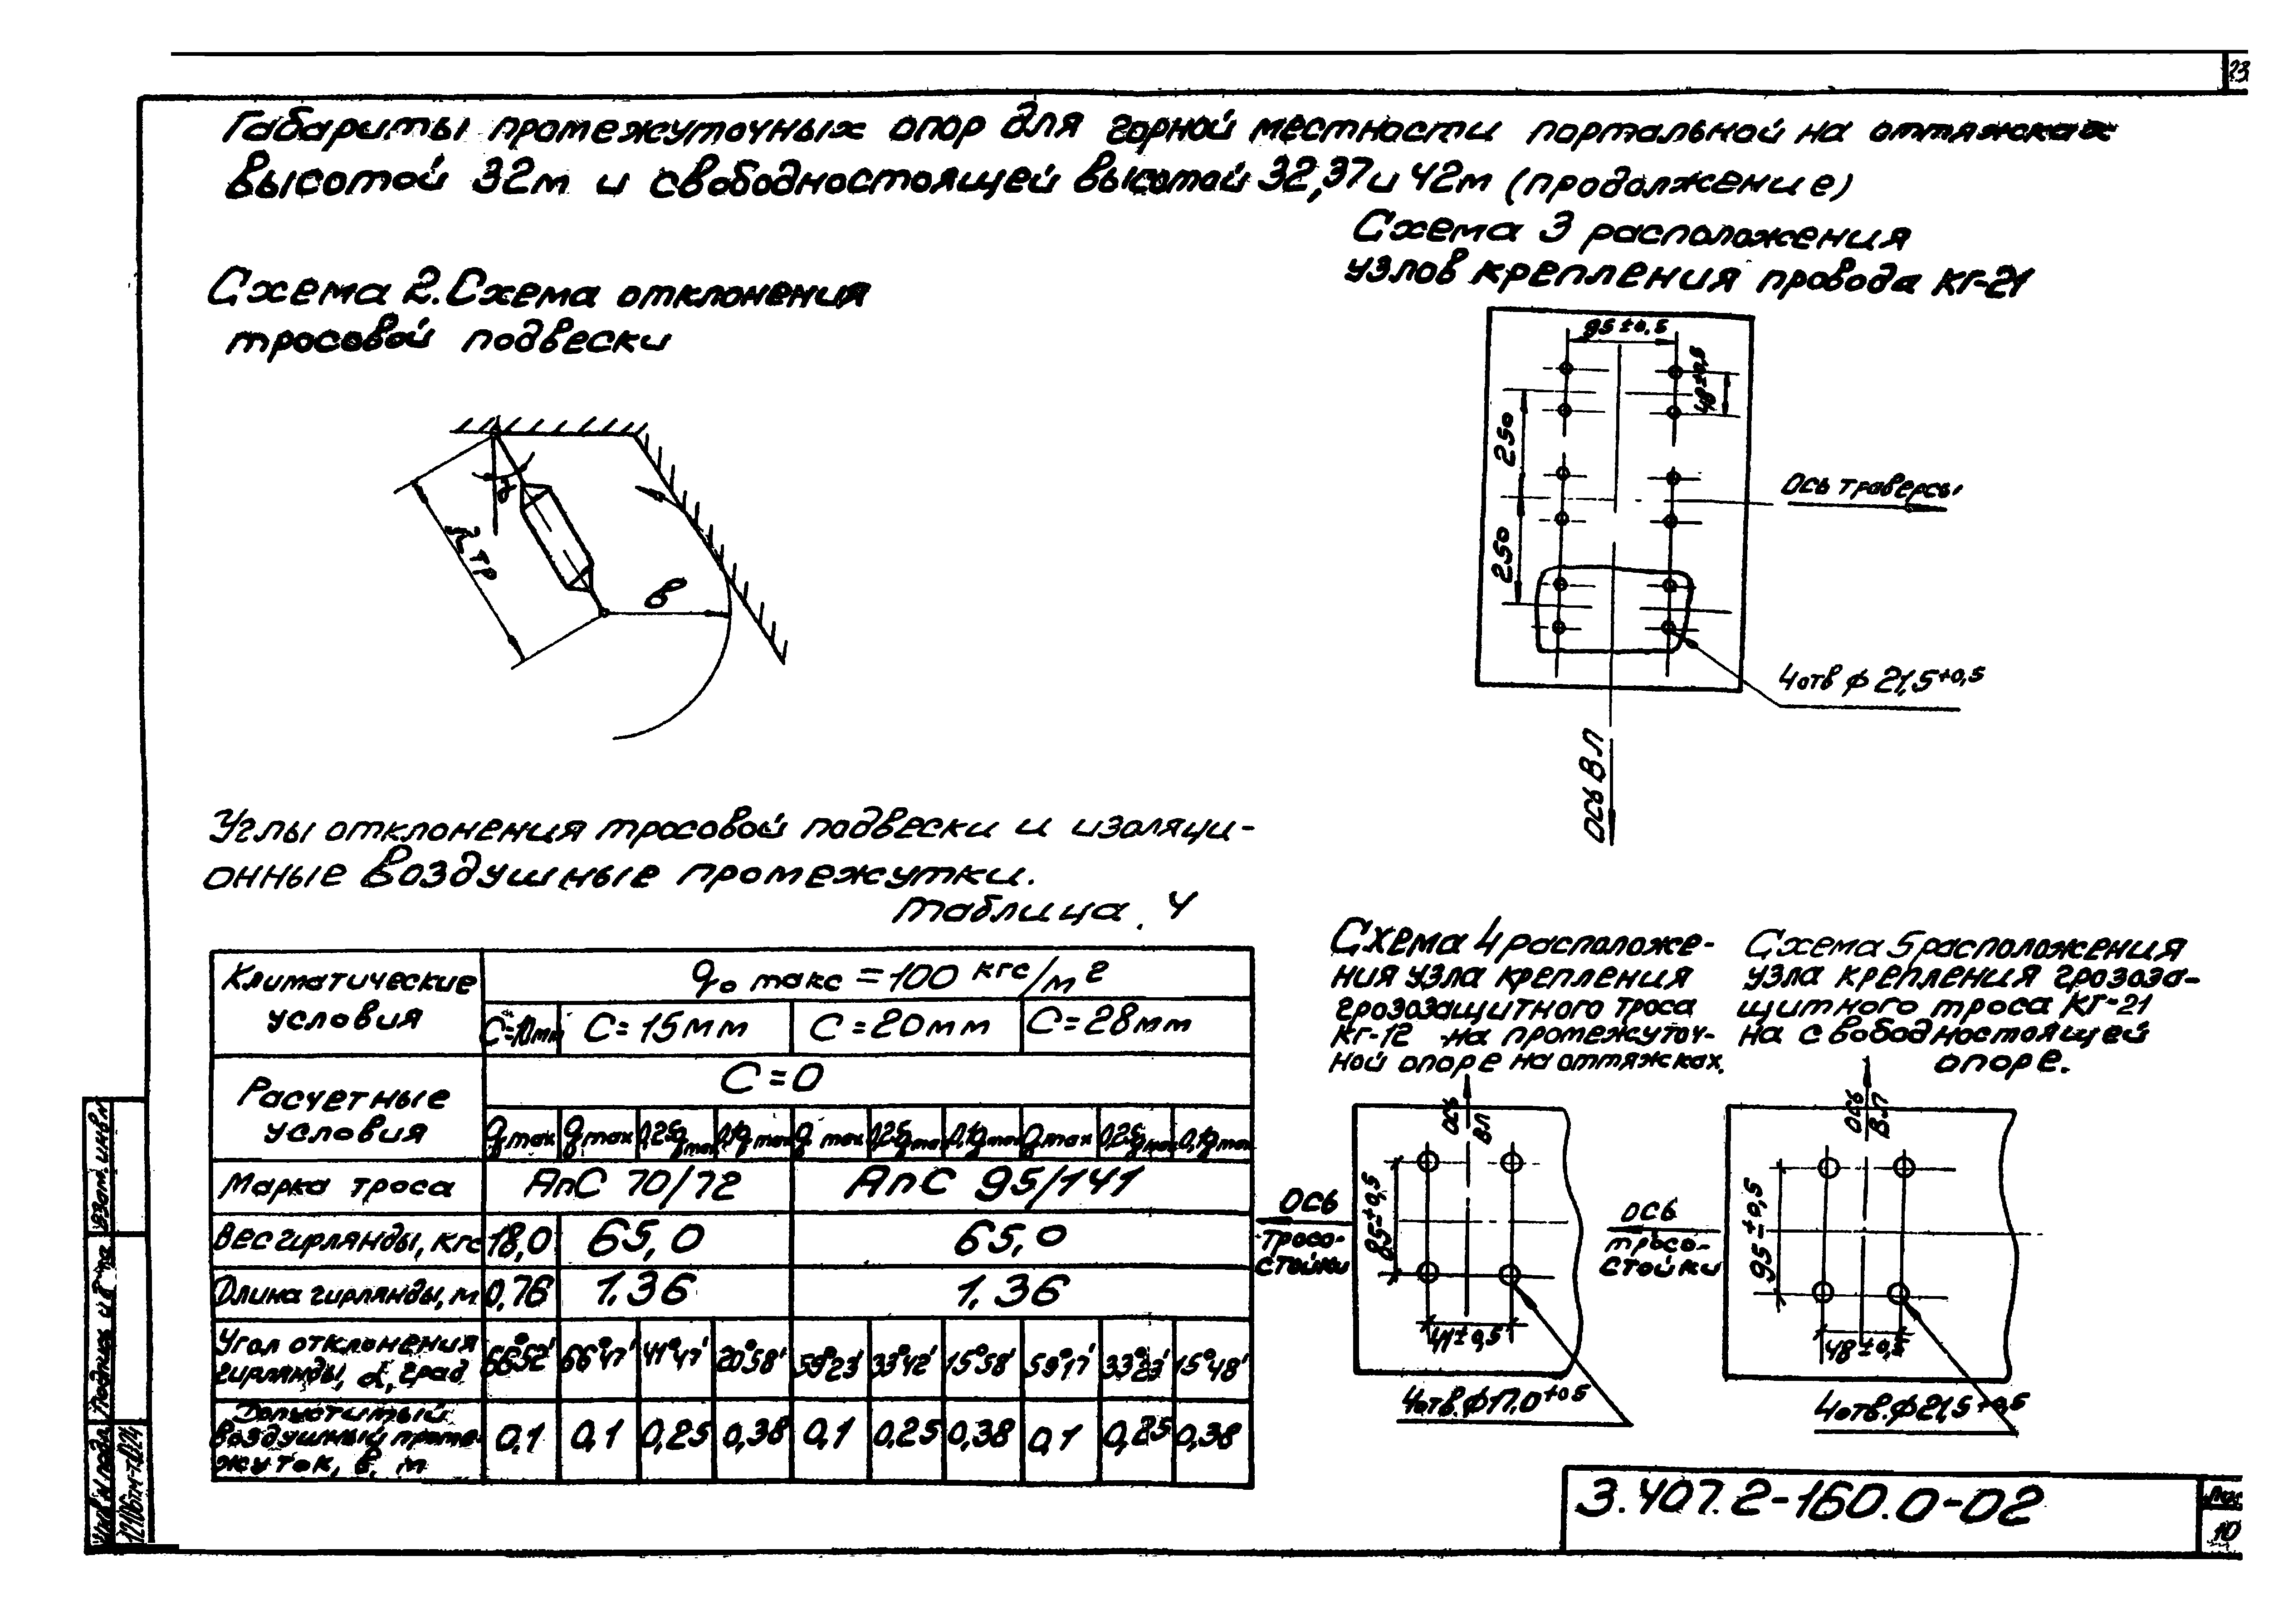 23
Габариты промежуточных опор для горной местности портальной на оттяжках
высотой 32м и свободностоящей высотой 32,37и 42м (продолжение)
Схема 2. Схема отклонения
тросовой подвески
α
λтр
в
Схема 3 расположения
узлов крепления провода КГ-21
95±0,5
48±0,5
250
250
Ось траверсы
4отв ф 21,5+0,5
ось ВЛ
Углы отклонения тросовой подвески и изоляци-
онные воздушные промежутки.
Таблица 4
Климатические условия
q₀ макс = 100 кгс/м²
C=10мм C=15мм C=20мм C=28мм
Расчетные условия
C=0
qmax qmax 0,25qmax 0,1qmax qmax 0,25qmax 0,1qmax qmax 0,25qmax 0,1qmax
Марка троса АпС 70/72 АпС 95/141
Вес гирлянды, кгс 18,0 65,0 65,0
Длина гирлянды, м 0,76 1,36 1,36
Угол отклонения
гирлянды, α, град 66°52' 66°47' 41°47' 20°58' 59°23' 33°42' 15°58' 59°17' 33°23' 15°48'
Допустимый
воздушный проме-
жуток, в, м 0,1 0,1 0,25 0,38 0,1 0,25 0,38 0,1 0,25 0,38
Схема 4 расположе-
ния узла крепления
грозозащитного троса
КГ-12 на промежуточ-
ной опоре на оттяжках.
ось
ВЛ
ось
тросо-
стойки
85±0,5
41±0,5
4отв. ф17.0+0,5
Схема 5 расположения
узла крепления грозоза-
щитного троса КГ-21
на свободностоящей
опоре.
ось
ВЛ
ось
тросо-
стойки
95±0,5
48±0,5
4отв. ф21,5+0,5
3.407.2-160.0-02
Лист
10
Взам. инв.№
Подпись и дата
Инв.№ подл.